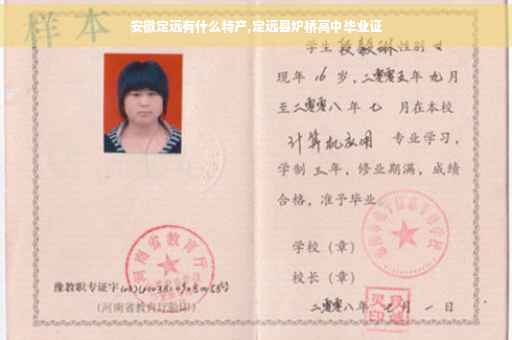 安徽定远有什么特产,定远县炉桥高中毕业证
样本
学生 段毅琳 性别 女
现年 16 岁,二零零五年 九 月
至二零零八年 七 月在本校
计算机应用 专业学习,
学制 三 年,修业期满,成绩
合格,准予毕业
学校（章）
校长（章）
二零零八年 七 月 一 日
河南省教育厅
豫教职专证字
(河南省教育厅验印)